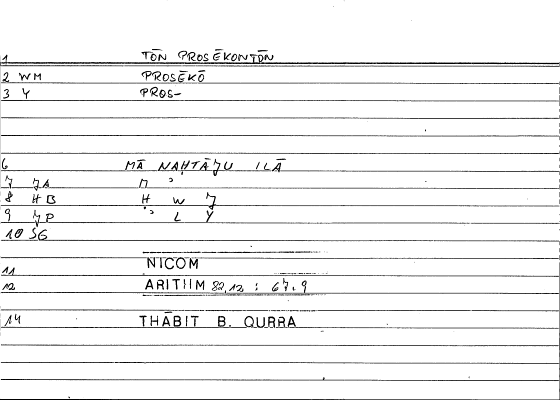 1 TŌN PROSĒKONTŌN
2 WM PROSĒKŌ
3 Y PROS-
6 MĀ NAḤTĀǦU ILĀ
7 ǦA M ʾ
8 HB Ḥ W Ǧ
9 ǦP ʾ L Y
10 SG
11 NICOM
12 ARITHM 82,12 : 67,9
14 THĀBIT B. QURRA